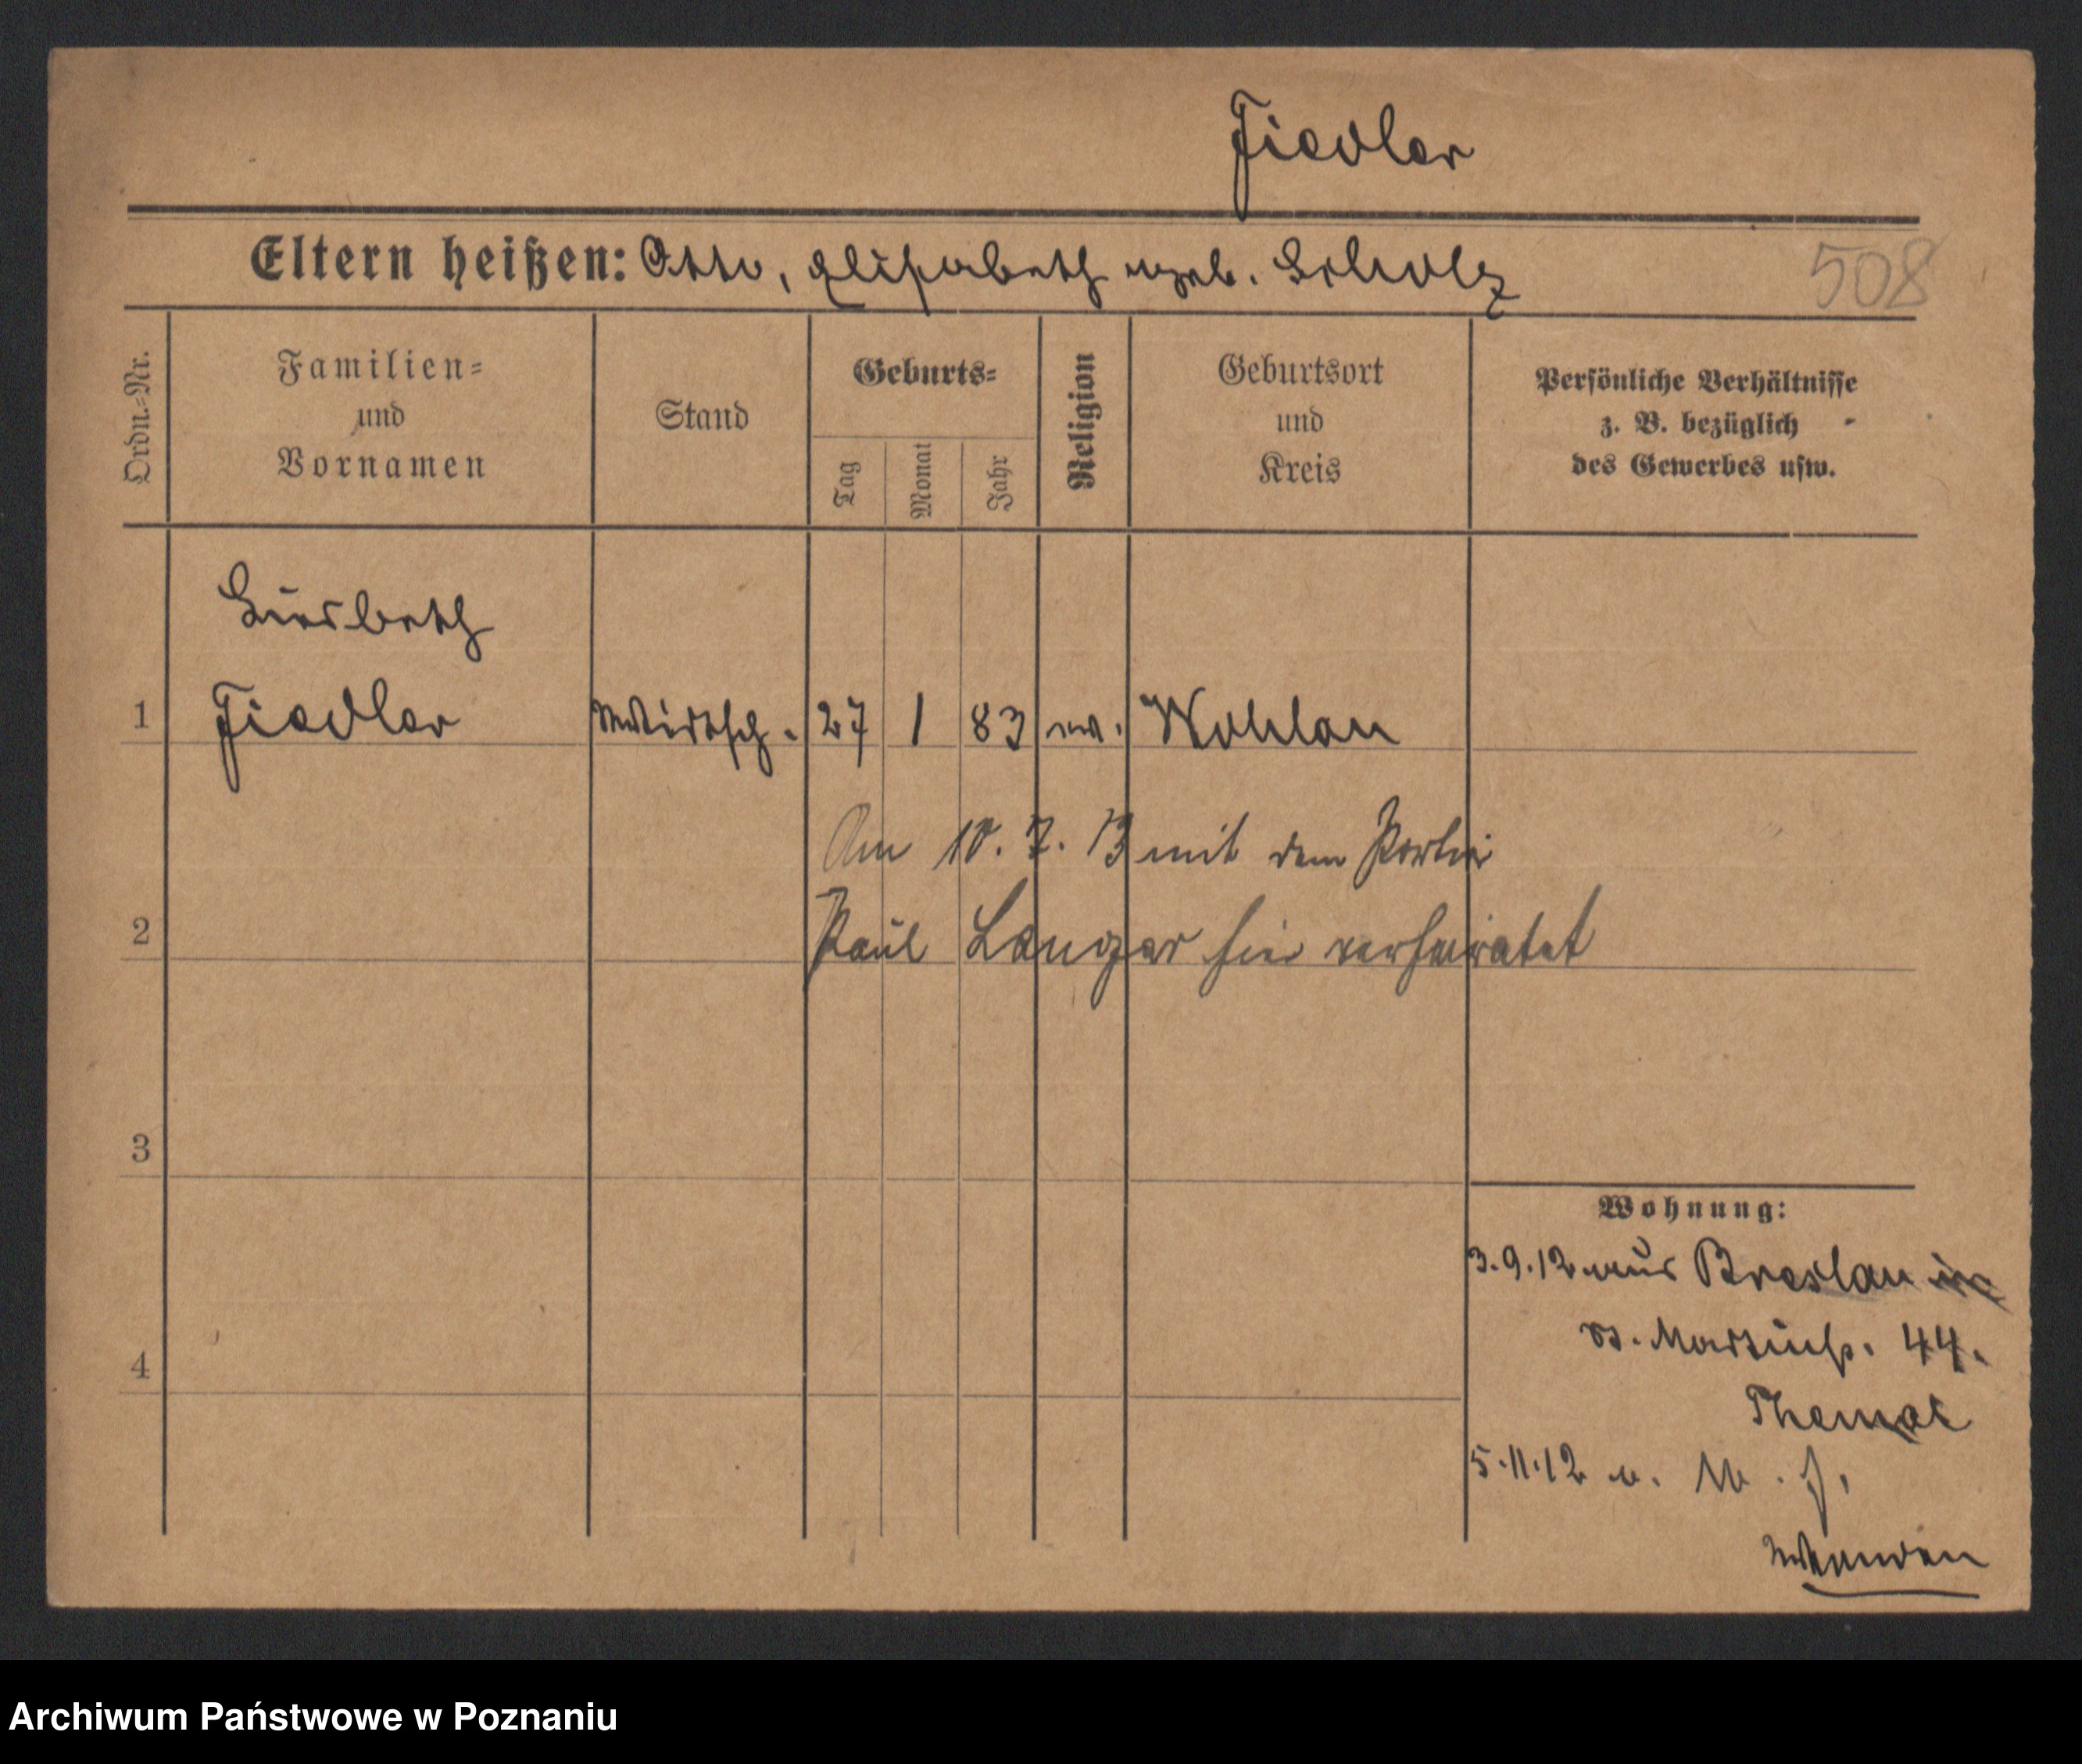 Fiedler
Eltern heißen: Otto, Elisabeth geb. Scholz
508
Ordn.-Nr.
Familien-
und
Vornamen
Stand
Geburts-
Tag
Monat
Jahr
Religion
Geburtsort
und
Kreis
Persönliche Verhältnisse
z. B. bezüglich
des Gewerbes usw.
Liesbeth
1 Fiedler Wirtsch. 27 1 83 ev. Wohlau
Am 10. 7. 13 mit dem Portier
2 Paul Langer hier verheiratet
3
4
Wohnung:
3.9.12 aus Breslau
St. Martinstr. 44.
Themal
5.11.12 a. W. J.
Wenden
Archiwum Państwowe w Poznaniu